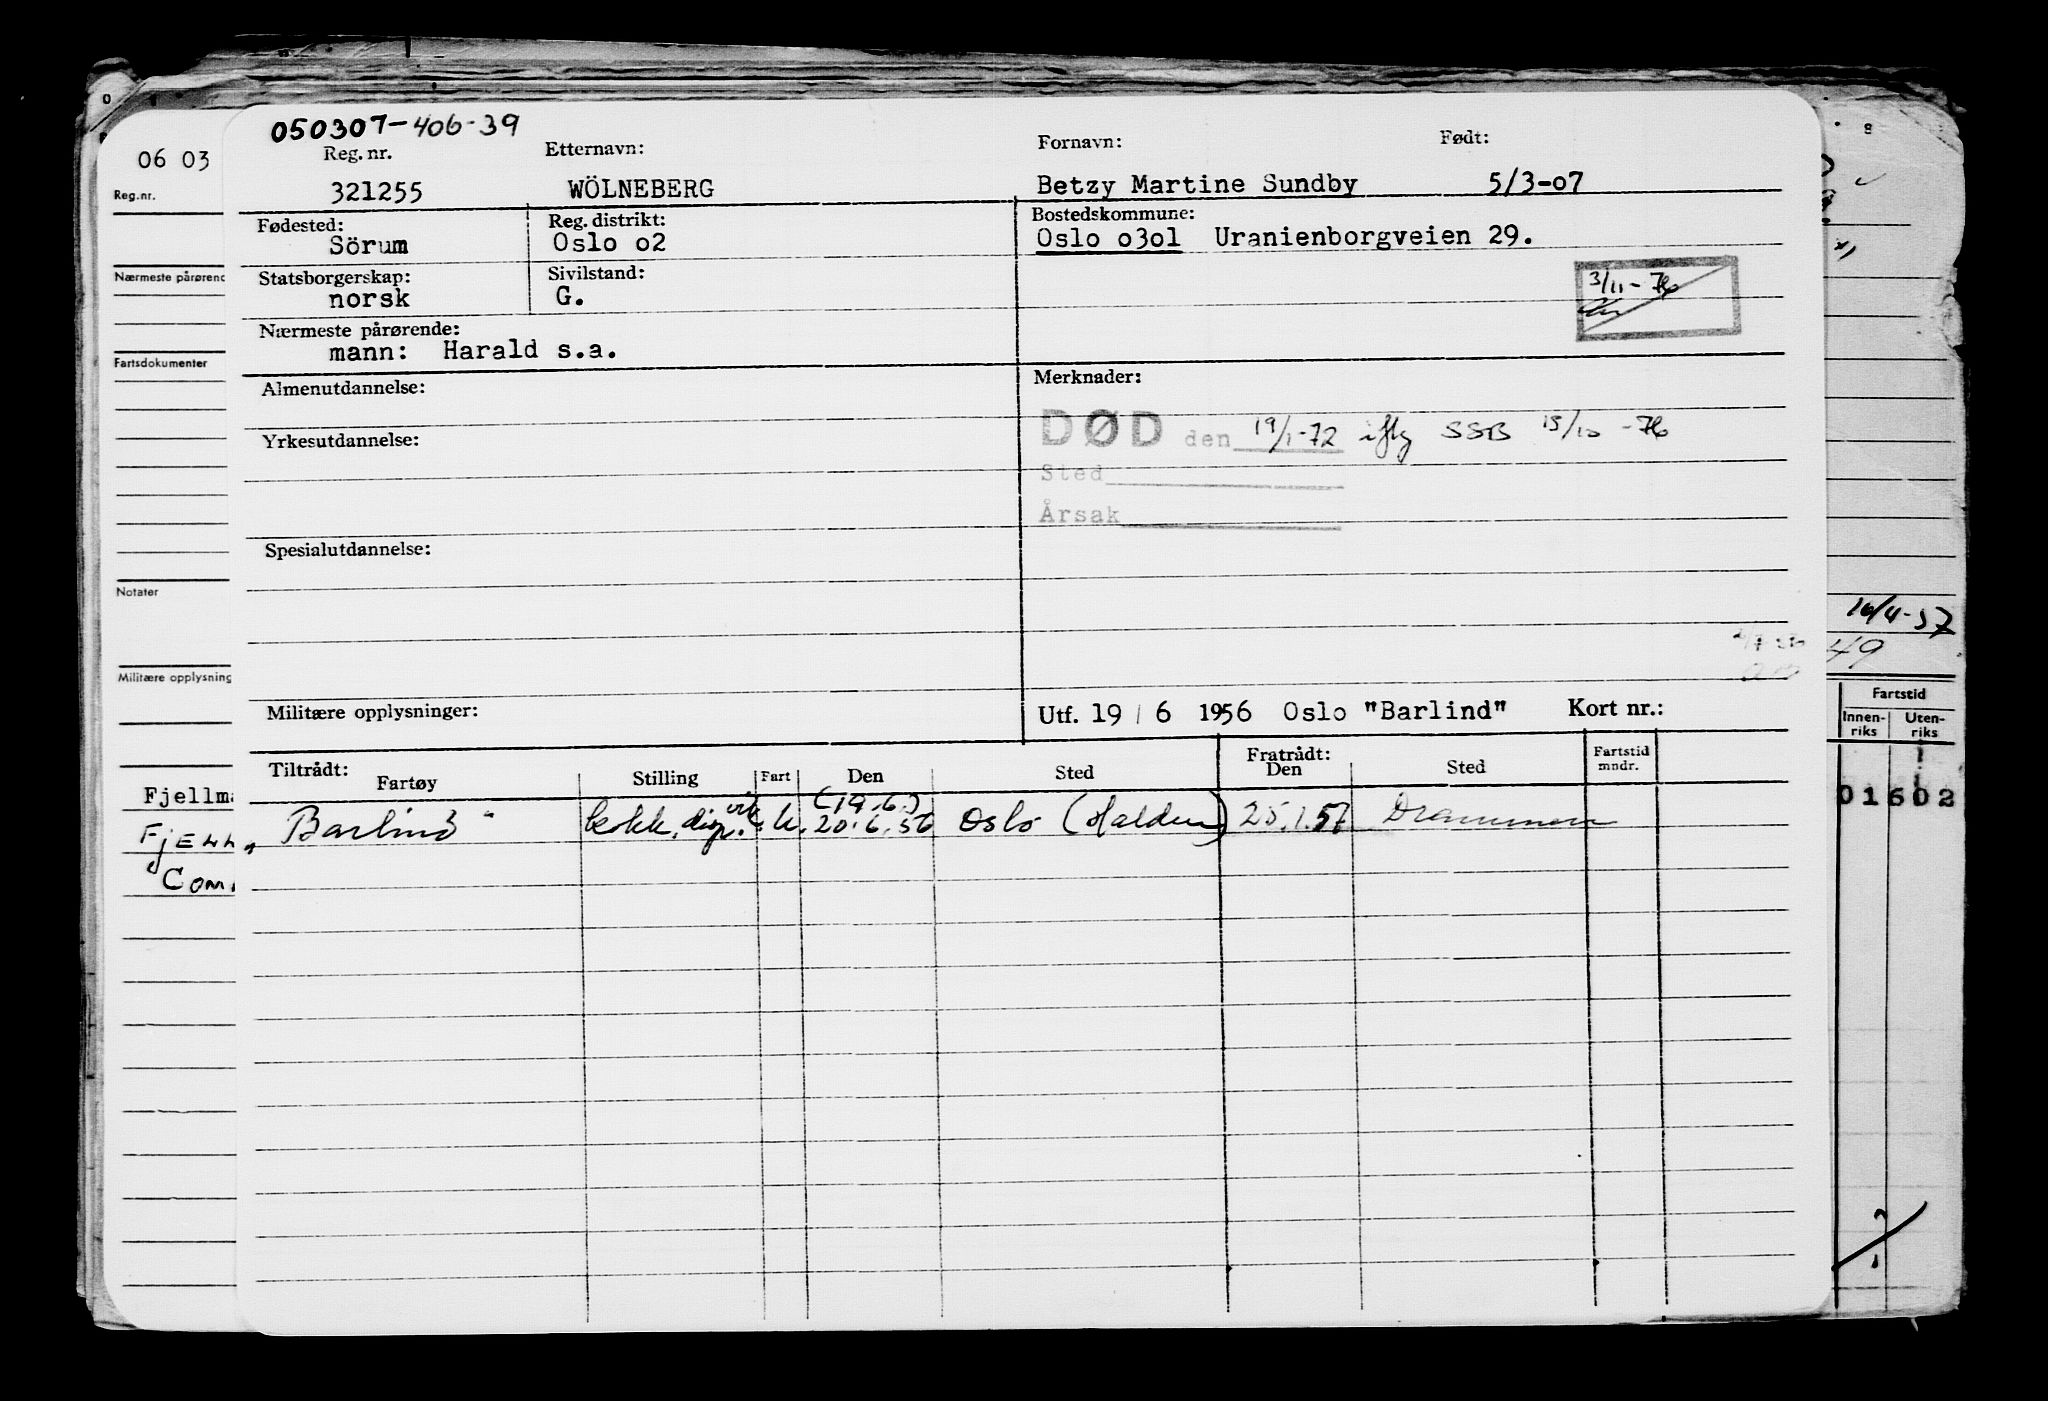 050307-406-39
Reg. nr. Etternavn: Fornavn: Født:
321255 WÖLNEBERG Betzy Martine Sundby 5/3-07
Fødested: Reg. distrikt: Bostedskommune:
Sörum Oslo o2 Oslo o3o1 Uranienborgveien 29.
Statsborgerskap: Sivilstand:
norsk G.
3/11-76
Nærmeste pårørende:
mann: Harald s.a.
Almenutdannelse: Merknader:
DØD den 19/1-72 iflg SSB 15/10-76
Yrkesutdannelse:
Sted
Årsak
Spesialutdannelse:
Militære opplysninger: Utf. 19/6 1956 Oslo "Barlind" Kort nr.:
Tiltrådt: Fratrådt:
Fartøy Stilling Fart Den Sted Den Sted Fartstid mndr.
(19.6.)
Barlind" kokk, disp. vik. u. 20.6.56 Oslo (Halden) 25.1.57 Drammen
06 03
Reg.nr.
Nærmeste pårørend
Fartsdokumenter
Notater
Militære opplysning
Fjellma
Fjell
"Com
8
16/4-57
49
Fartstid
Innen-riks Uten-riks
01602